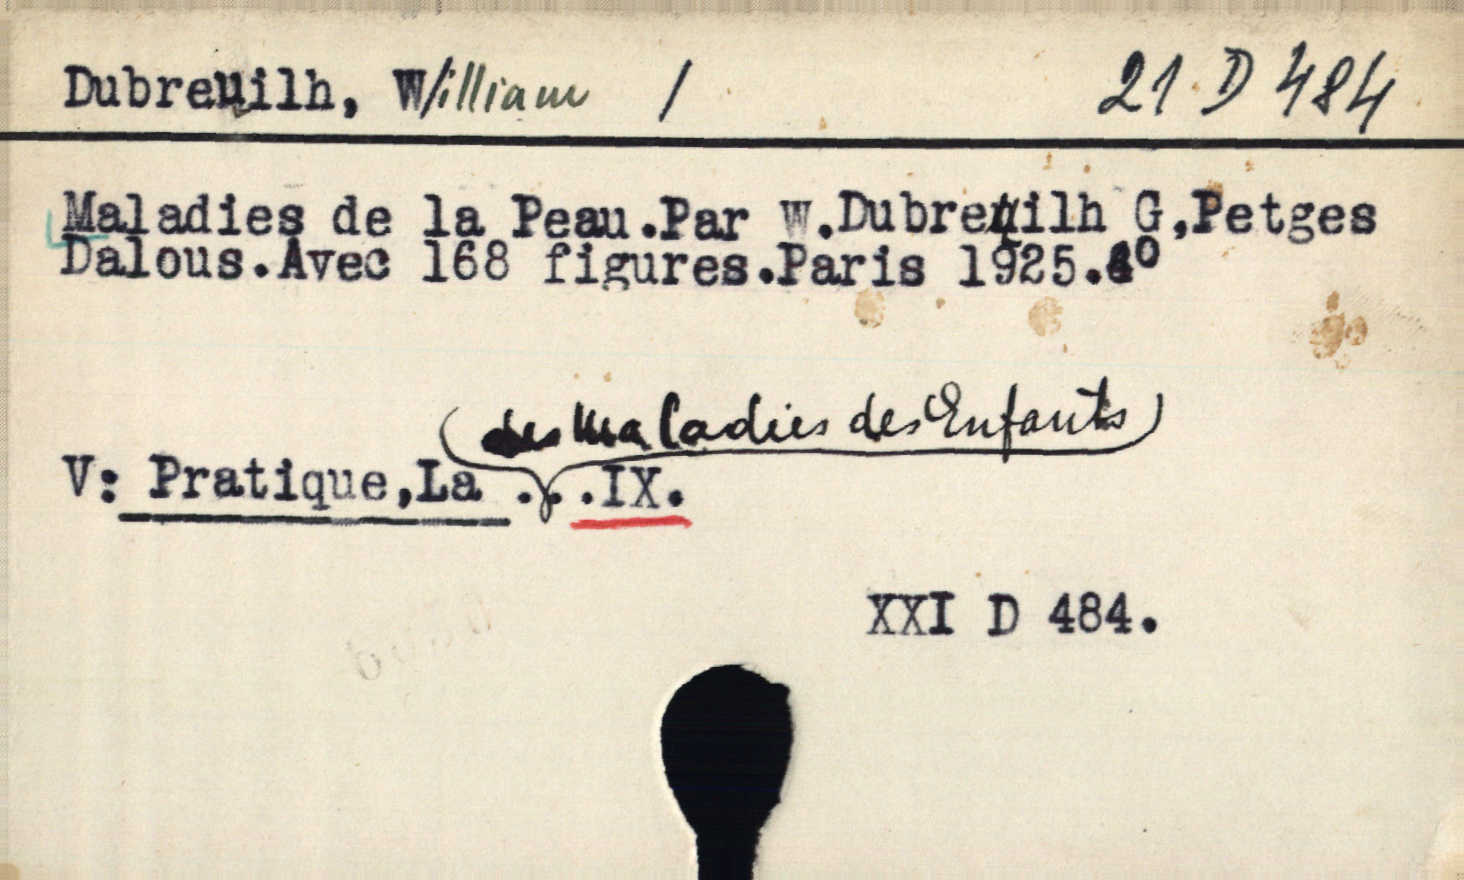 Dubreuilh, William / 21 D 484
Maladies de la Peau.Par W.Dubreuilh G,Petges
Dalous.Avec 168 figures.Paris 1925.
(des Maladies des Enfants)
V: Pratique,La ...IX.
XXI D 484.